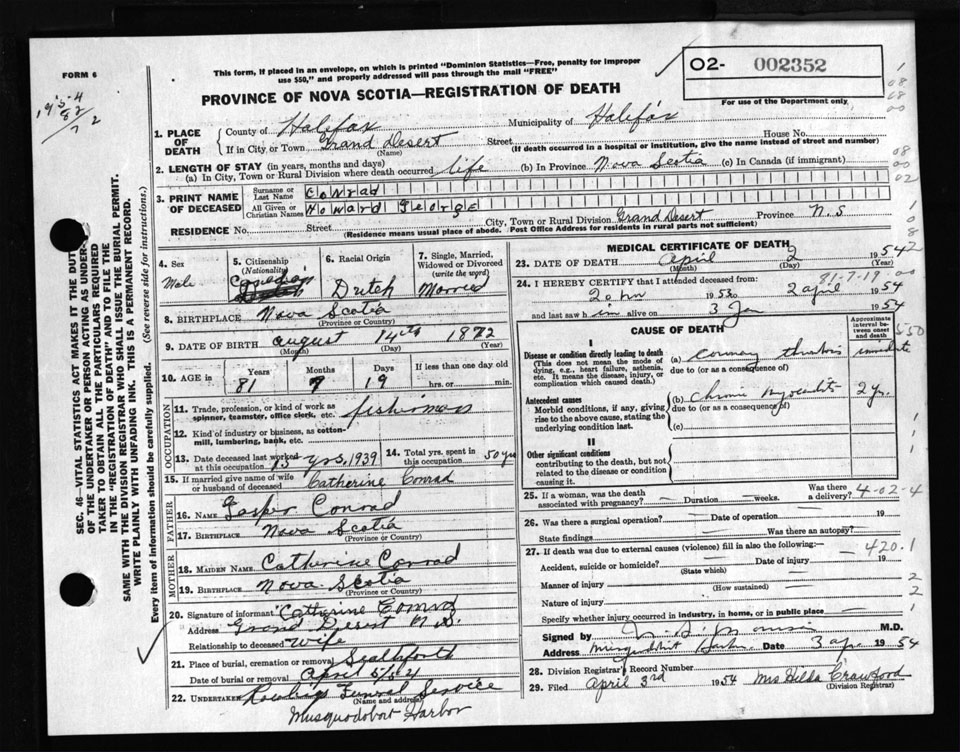 FORM 6
This form, if placed in an envelope, on which is printed "Dominion Statistics—Free, penalty for improper
use $50," and properly addressed will pass through the mail "FREE"
O2- 002352
For use of the Department only.
PROVINCE OF NOVA SCOTIA—REGISTRATION OF DEATH
1954
82
/72
SEC. 46—VITAL STATISTICS ACT MAKES IT THE DUTY
OF THE UNDERTAKER OR PERSON ACTING AS UNDER-
TAKER TO OBTAIN ALL THE PARTICULARS REQUIRED
IN THE "REGISTRATION OF DEATH" AND TO FILE THE
SAME WITH THE DIVISION REGISTRAR WHO SHALL ISSUE THE BURIAL PERMIT.
WRITE PLAINLY WITH UNFADING INK. THIS IS A PERMANENT RECORD.
Every item of information should be carefully supplied. (See reverse side for instructions.)
1. PLACE OF DEATH
County of Halifax Municipality of Halifax
If in City or Town Grand Desert Street House No.
(Name) (If death occurred in a hospital or institution, give the name instead of street and number)
2. LENGTH OF STAY (in years, months and days)
(a) In City, Town or Rural Division where death occurred life (b) In Province Nova Scotia (c) In Canada (if immigrant)
3. PRINT NAME OF DECEASED
Surname or Last Name Conrad
All Given or Christian Names Howard George
RESIDENCE No. Street City, Town or Rural Division Grand Desert Province N.S
(Residence means usual place of abode. Post Office Address for residents in rural parts not sufficient)
4. Sex Male
5. Citizenship (Nationality) Canadian
6. Racial Origin Dutch
7. Single, Married, Widowed or Divorced (write the word) Married
8. BIRTHPLACE Nova Scotia
(Province or Country)
9. DATE OF BIRTH August 14th 1872
(Month) (Day) (Year)
10. AGE in Years Months Days If less than one day old
81 7 19 hrs. or min.
OCCUPATION
11. Trade, profession, or kind of work as spinner, teamster, office clerk, etc. fisherman
12. Kind of industry or business, as cotton-mill, lumbering, bank, etc.
13. Date deceased last worked at this occupation 15 yrs, 1939
14. Total yrs. spent in this occupation 50 yrs
15. If married give name of wife or husband of deceased Catherine Conrad
FATHER
16. NAME Gasper Conrad
17. BIRTHPLACE Nova Scotia
(Province or Country)
MOTHER
18. MAIDEN NAME Catherine Conrad
19. BIRTHPLACE Nova Scotia
(Province or Country)
20. Signature of informant Catherine Conrad
Address Grand Desert N.S.
Relationship to deceased wife
21. Place of burial, cremation or removal Seaforth
Date of burial or removal April 5/54
22. UNDERTAKER Funeral Service
(Name and address)
Musquodoboit Harbor
MEDICAL CERTIFICATE OF DEATH
23. DATE OF DEATH April 2 1954
(Month) (Day)
81-7-19
24. I HEREBY CERTIFY that I attended deceased from:
1953 to 2 April 1954
and last saw him alive on 3 Jan 1954
CAUSE OF DEATH
Approximate interval between onset and death
I
Disease or condition directly leading to death
(This does not mean the mode of dying, e.g., heart failure, asthenia, etc. It means the disease, injury, or complication which caused death.)
(a) coronary thrombosis immediate
due to (or as a consequence of)
Antecedent causes
Morbid conditions, if any, giving rise to the above cause, stating the underlying condition last.
(b) Chronic myocarditis 2 yr.
due to (or as a consequence of)
(c)
II
Other significant conditions
contributing to the death, but not related to the disease or condition causing it.
25. If a woman, was the death associated with pregnancy? — Duration — weeks. Was there a delivery? 4-02-4
26. Was there a surgical operation? — Date of operation — 19
State findings Was there an autopsy?
27. If death was due to external causes (violence) fill in also the following:— 420.1
Accident, suicide or homicide? Date of injury 19
(State which)
Manner of injury (How sustained)
Nature of injury
Specify whether injury occurred in industry, in home, or in public place
Signed by M.D.
Address Musquodoboit Harbor Date 3 Apr. 1954
28. Division Registrar's Record Number
29. Filed April 3rd 1954 Mrs Hilda Crawford
(Division Registrar)